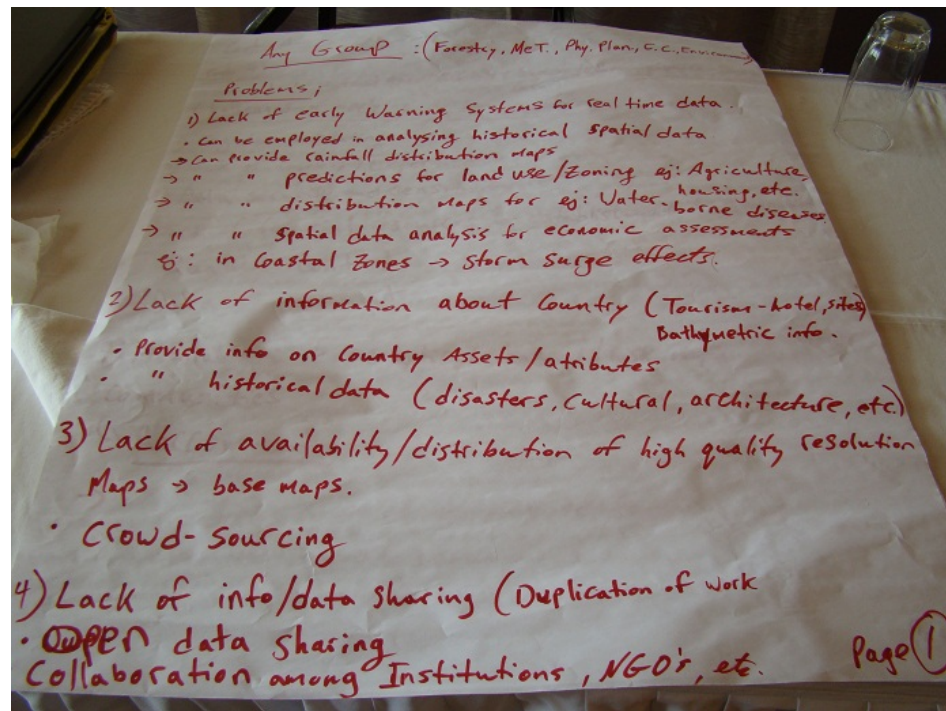 Any Group : (Forestry, MeT., Phy. Plan., E.C., Environ
Problems;
1) Lack of early Warning Systems for real time data.
• can be employed in analysing historical spatial data
→ Can provide rainfall distribution maps
→ " " predictions for land use/zoning eg: Agriculture, housing, etc.
→ " " distribution maps for eg: Water-borne diseases
→ " " spatial data analysis for economic assessments
eg: in Coastal Zones → Storm Surge effects.
2) Lack of information about Country (Tourism-hotel, sites)
Bathymetric info.
• Provide info on Country Assets/atributes
• " historical data (disasters, Cultural, architecture, etc.)
3) Lack of availability/distribution of high quality resolution
Maps → base maps.
• Crowd-sourcing
4) Lack of info/data sharing (Duplication of work
• Open data sharing
Collaboration among Institutions, NGO's, etc.
Page 1